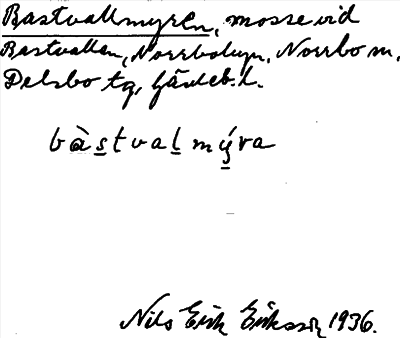 Bastvallmyren, mosse vid
Bastvallen, Norrbobyn, Norrbo sn,
Delsbo tg, Gävleb. l.
bàs̲tval̲mý̲ra
Nils Erik Eriksson 1936.